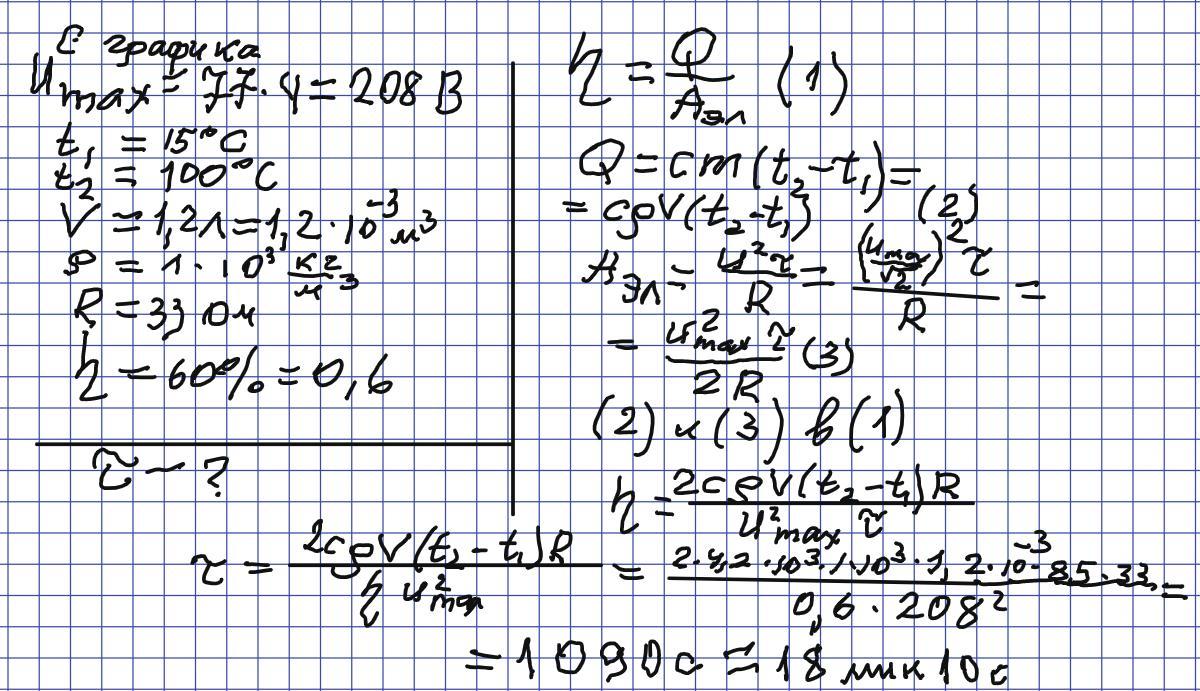 С графика
U_max = 77·4 = 208 В
t₁ = 15°C
t₂ = 100°C
V = 1,2л = 1,2·10⁻³ м³
ρ = 1·10³ кг/м³
R = 33 Ом
η = 60% = 0,6
τ - ?
η = Q/Aэл (1)
Q = cm(t₂-t₁) =
= cρV(t₂-t₁) (2)
Aэл = U²τ/R = (U_max/√2)²τ/R =
= U²_max τ/2R (3)
(2) и (3) в (1)
η = 2cρV(t₂-t₁)R/U²_max τ
τ = 2cρV(t₂-t₁)R/η U²_max = 2·4,2·10³·1·10³·1,2·10⁻³·85·33/0,6·208² =
= 1090с = 18 мин 10с